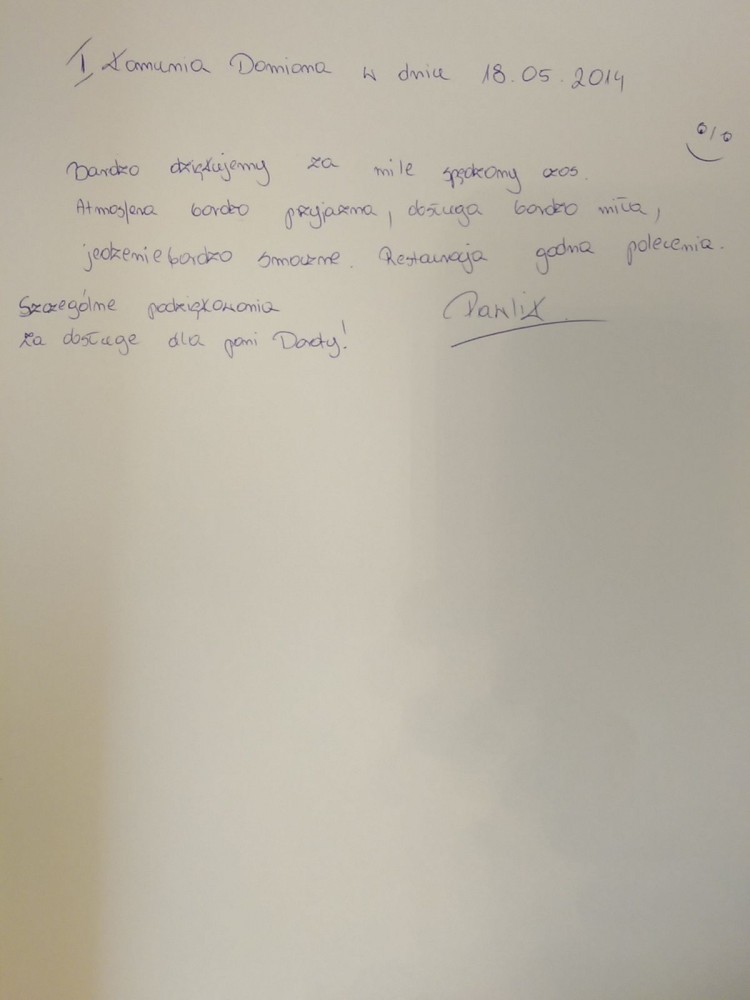 I Komunia Damiana w dniu 18.05.2014
Bardzo dziękujemy za mile spędzony czas.
Atmosfera bardzo przyjazna, obsługa bardzo miła,
jedzenie bardzo smaczne. Restauracja godna polecenia.
Szczególne podziękowania
za obsługę dla pani Doroty!
Pawlik